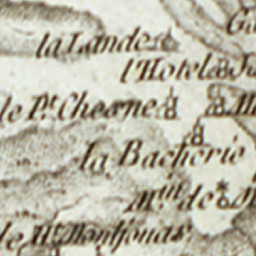 la Lande
l'Hotel
le Pt. Chesne
la Bacherie
Min de
le Ht. Montjouas